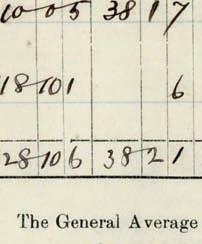 10 0 5 38 1 7
18 10 1 6
28 10 6 38 2 1
The General Average